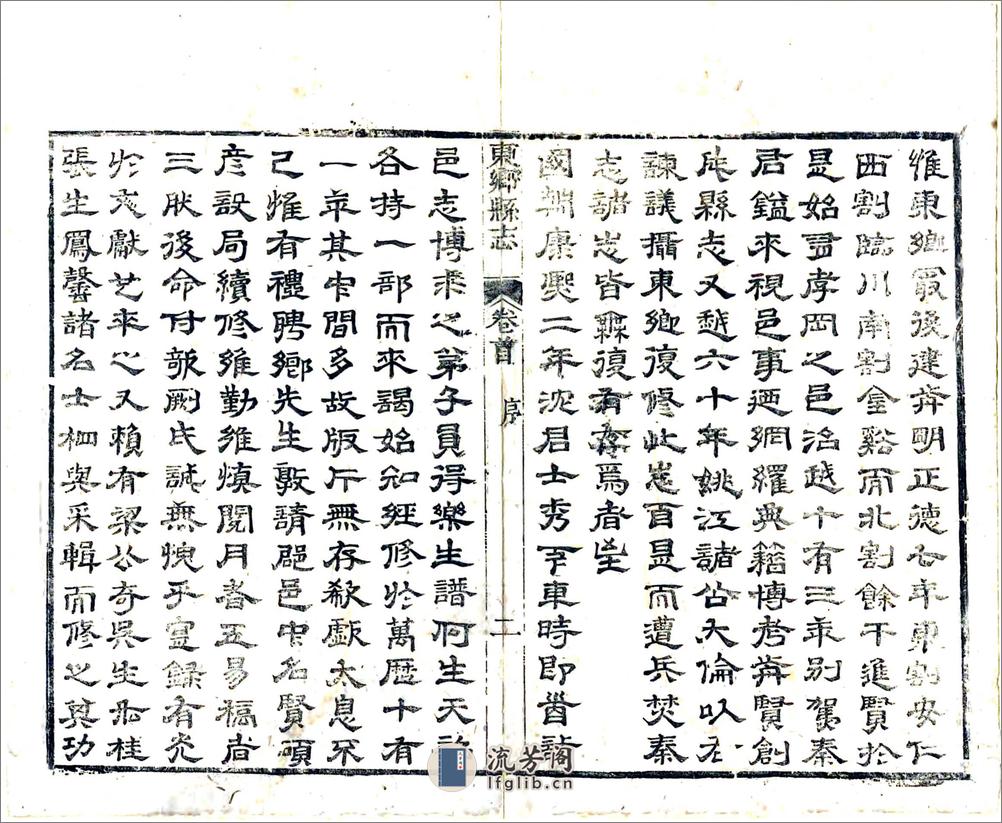 維東鄉最後建葬明正德七年東割安仁
西割臨川南割金谿而北割餘干進賢於
是始置孝岡之邑治越十有三年別駕秦
君鎰來視邑事迺網羅典籍博考前賢創
成縣志又越六十年姚江諸公大倫以左
諫議攝東鄉復修此志百是而遭兵焚秦
志諸志皆無復有存焉者望
國朝康熙二年沈君士秀下東時即首詢
東鄉縣志 卷首 序 二
邑志博采之弟子員得樂生譜何生天
各持一部而來謁始知經修於萬曆十有
一年其中間多故版片無存欷歔太息不
已惟有禮聘鄉先生敦請闔邑中名賢碩
彥設局續修維勤維慎閱月者五易稿者
三肰後命付剞劂氏誠無愧乎實錄有光
於文獻芝來之又賴有梁公奇吳生 桂
張生鳳馨諸名士相與采輯而修之其功
流芳閣
lfglib.cn